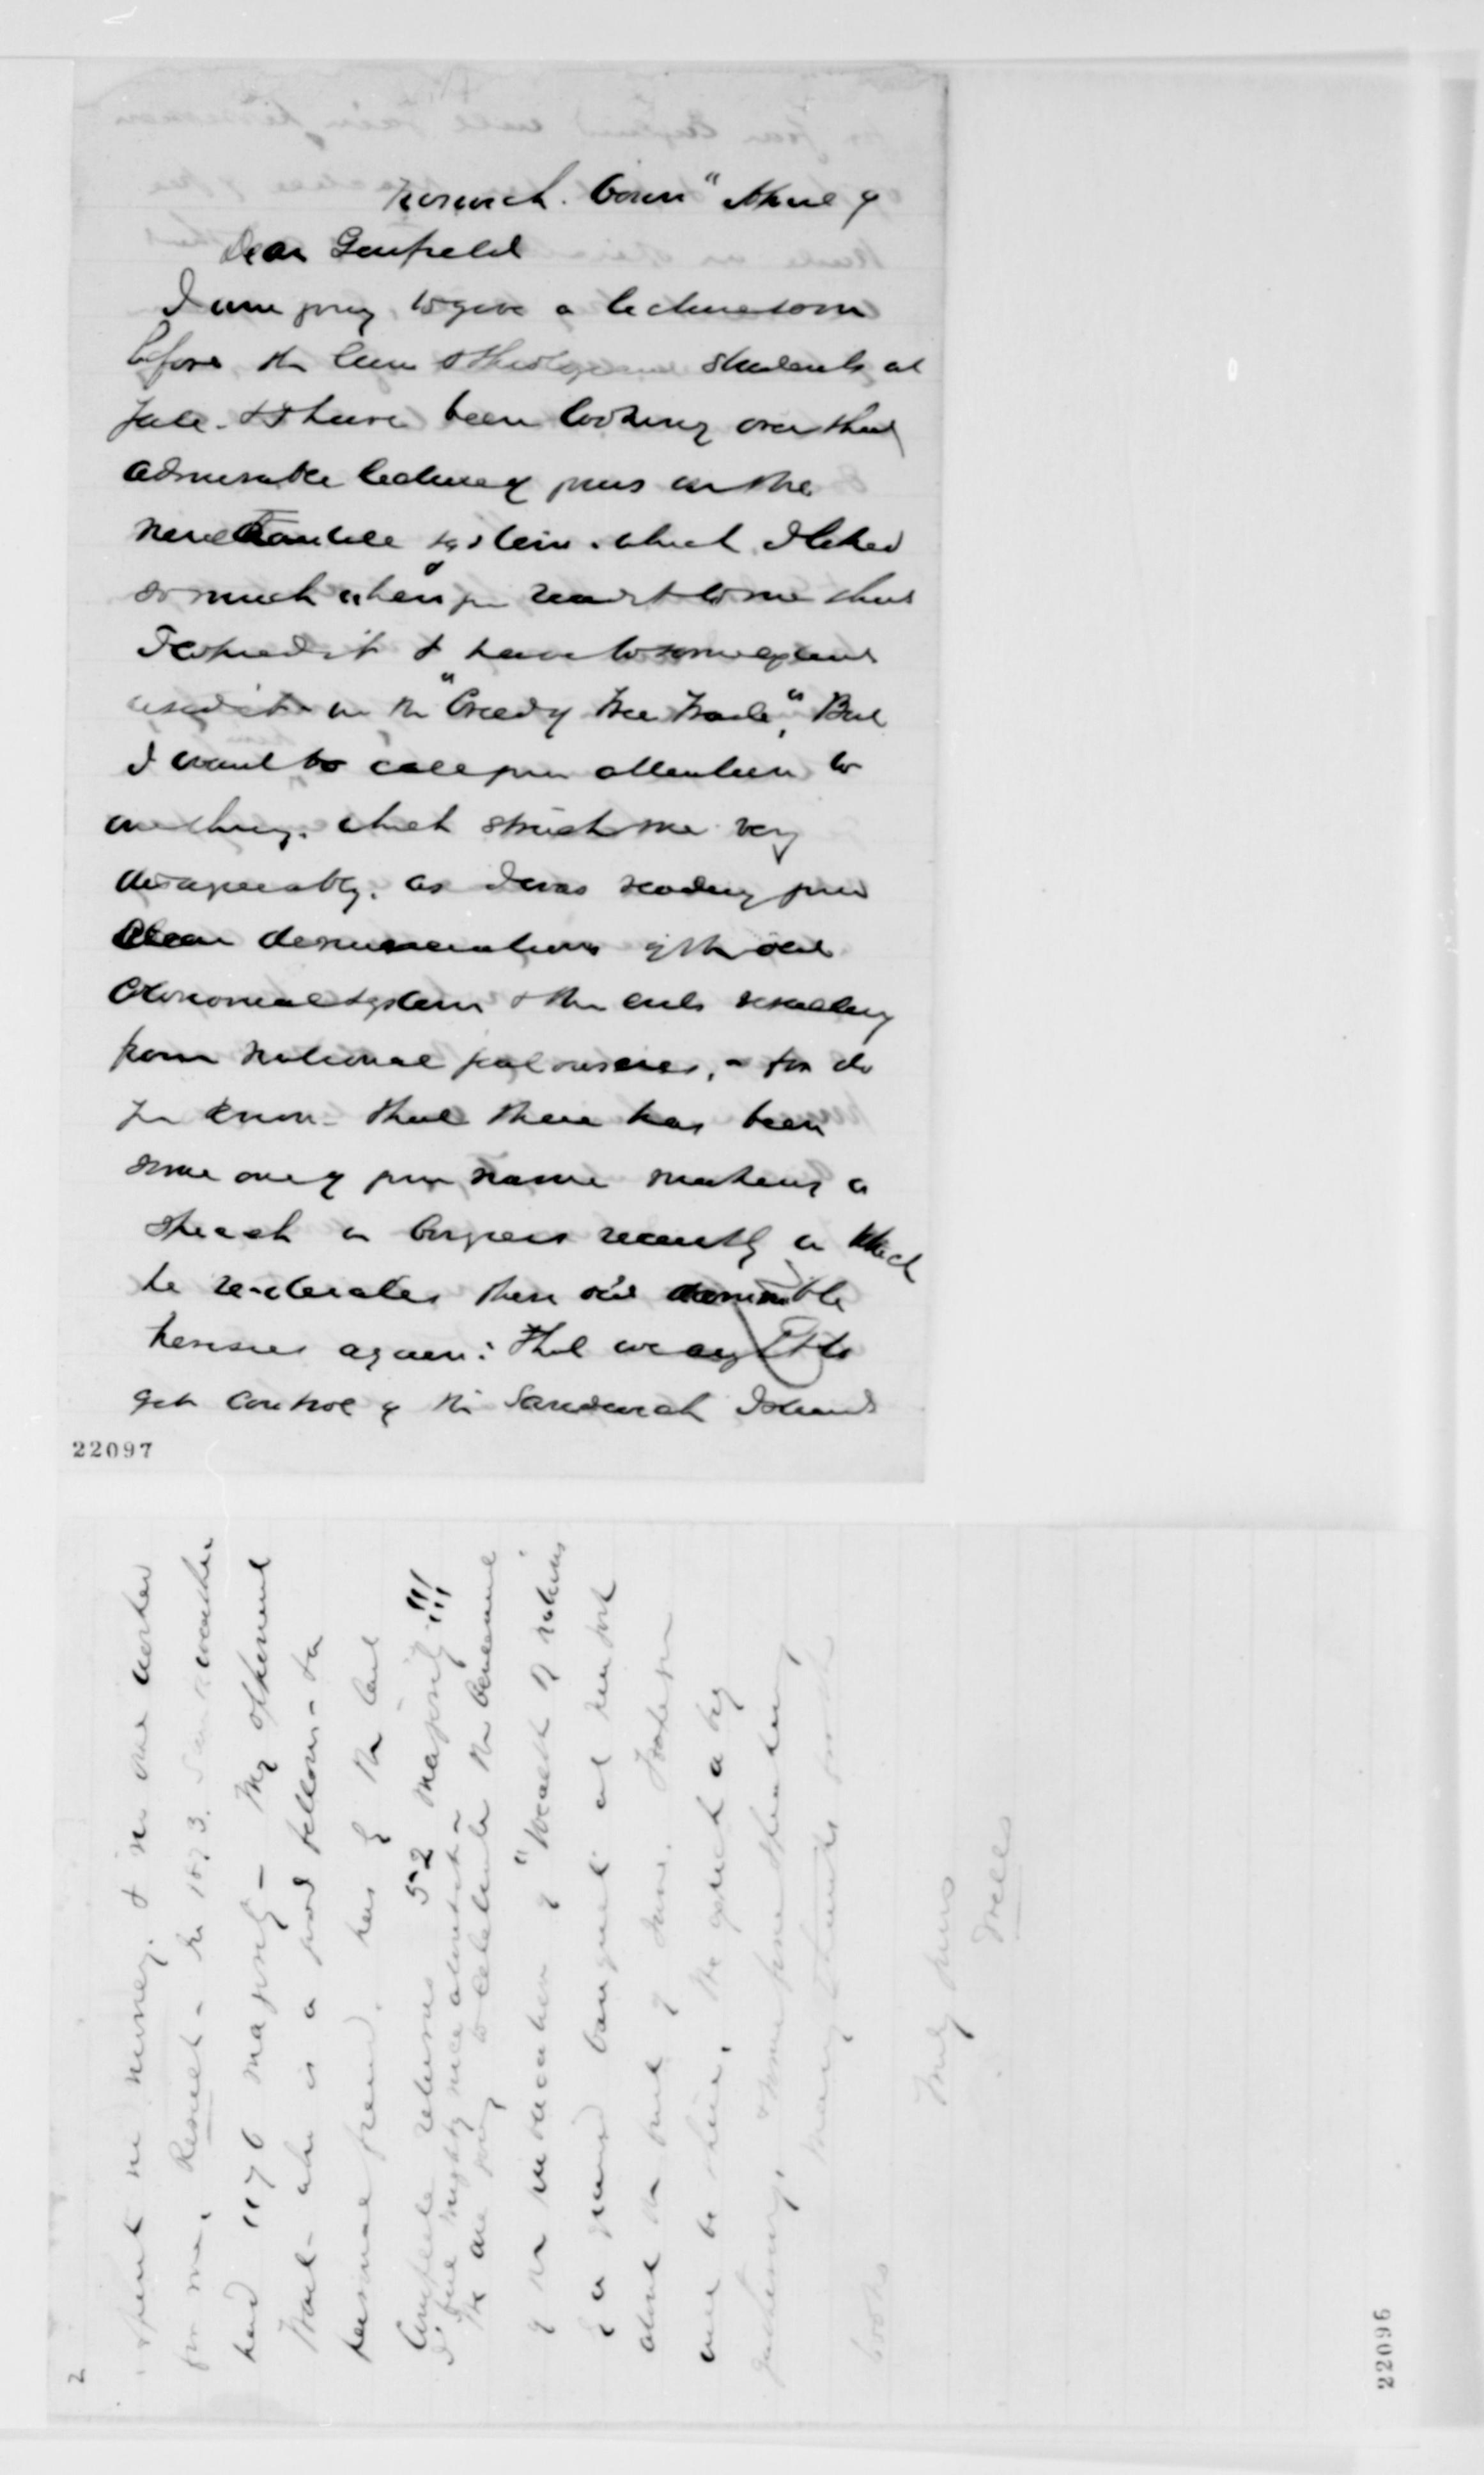 Norwich. Conn" April 9
Dear Garfield
I am going to give a lecture soon
before the law & theological students at
Yale. & I have been looking over that
admirable lecture of yours on the
mercantile system. which I liked
so much when you read it to me that
I copied it & have to some extent
used it in the "Creed of Free Trade," But
I want to call your attention to
one thing. which struck me very
disagreeably. as I was reading your
clear denunciations of the old
colonial system & the evils resulting
from national jealousies, - for do
you know - that there has been
some one of your name making a
speech in Congress recently in which
he reiterates these old damnable
heresies again: that we ought to
get control of the Sandwich Islands
22097
2
spent no money. & no one worked
for me. Result - in 1873.
had 1176 majority - My opponent
Wait - who is a good fellow - &
personal friend. has by the last
Complete returns 52 majority!!!!!!
mighty nice
We are going to celebrate the Centennial
of the publication of "Wealth of Nations"
by a grand banquet at New York
about the first of June.
will be there. We expect a big
gathering. & some fine speaking
Many thanks for the
books
Truly yours
Wells
22096